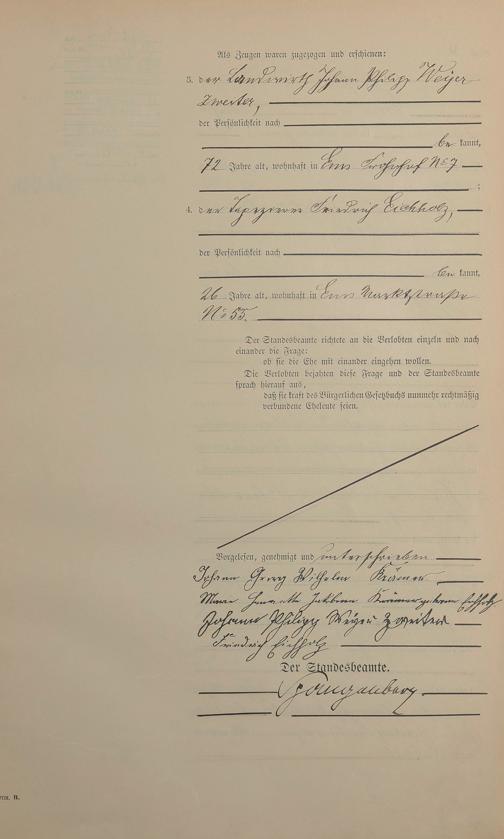 Als Zeugen waren zugezogen und erschienen:
3. der Landwirth Johann Philipp Weyer
zweiter,
der Persönlichkeit nach
be kannt,
72 Jahre alt, wohnhaft in Ems Frohnhof No 7
;
4. der Tapezierer Friedrich Eichholz,
der Persönlichkeit nach
be kannt,
26 Jahre alt, wohnhaft in Ems Marktstraße
No 55.
Der Standesbeamte richtete an die Verlobten einzeln und nach
einander die Frage:
ob sie die Ehe mit einander eingehen wollen.
Die Verlobten bejahten diese Frage und der Standesbeamte
sprach hierauf aus,
daß sie kraft des Bürgerlichen Gesetzbuchs nunmehr rechtmäßig
verbundene Eheleute seien.
Vorgelesen, genehmigt und unterschrieben
Johann Georg Wilhelm Krämer
Krämer geborene Eichholz
Johann Philipp Weyer zweiter
Friedrich Eichholz
Der Standesbeamte.
Spangenberg
B.